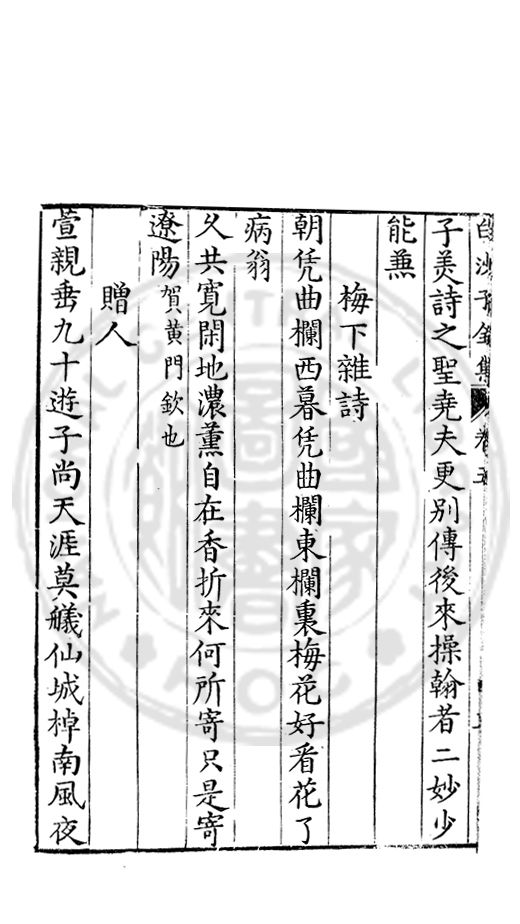 白沙子全集 卷五
子美詩之聖堯夫更別傳後來操翰者二妙少
能兼
梅下雜詩
朝凭曲欄西暮凭曲欄東欄裏梅花好看花了
病翁
久共寬閑地濃薰自在香折來何所寄只是寄
遼陽賀黃門欽也
贈人
萱親垂九十遊子尚天涯莫艤仙城棹南風夜